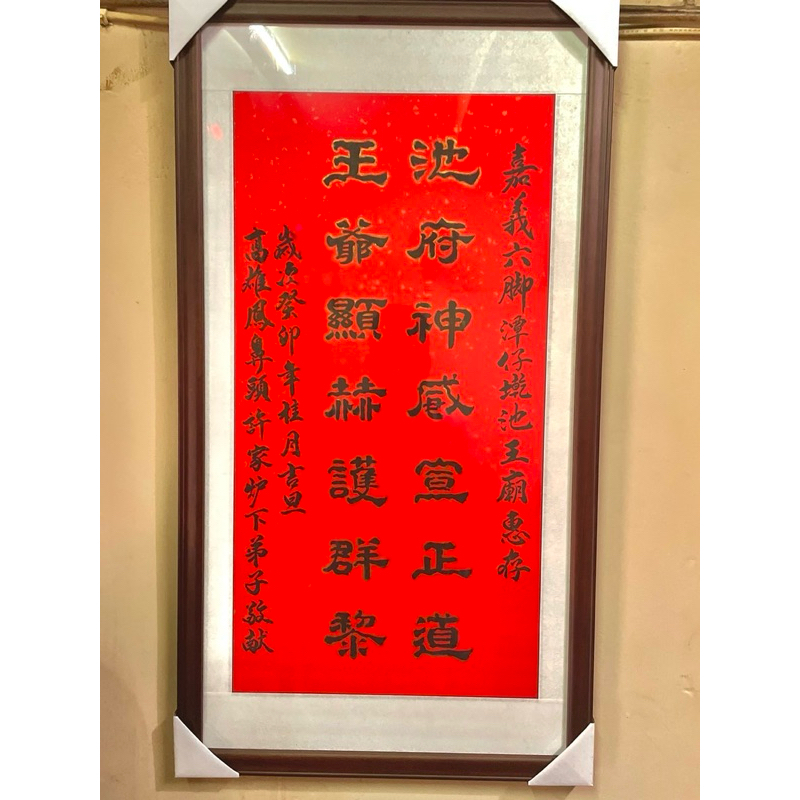 嘉義六脚潭仔墘池王廟惠存
池府神威宣正道
王爺顯赫護群黎
歲次癸卯年桂月吉旦
高雄鳳鼻頭許家炉下弟子敬献